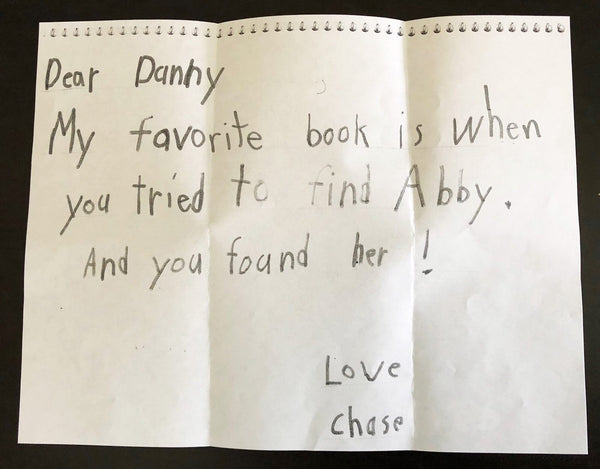 Dear Danny
My favorite book is when
you tried to find Abby.
And you found her!
Love
Chase